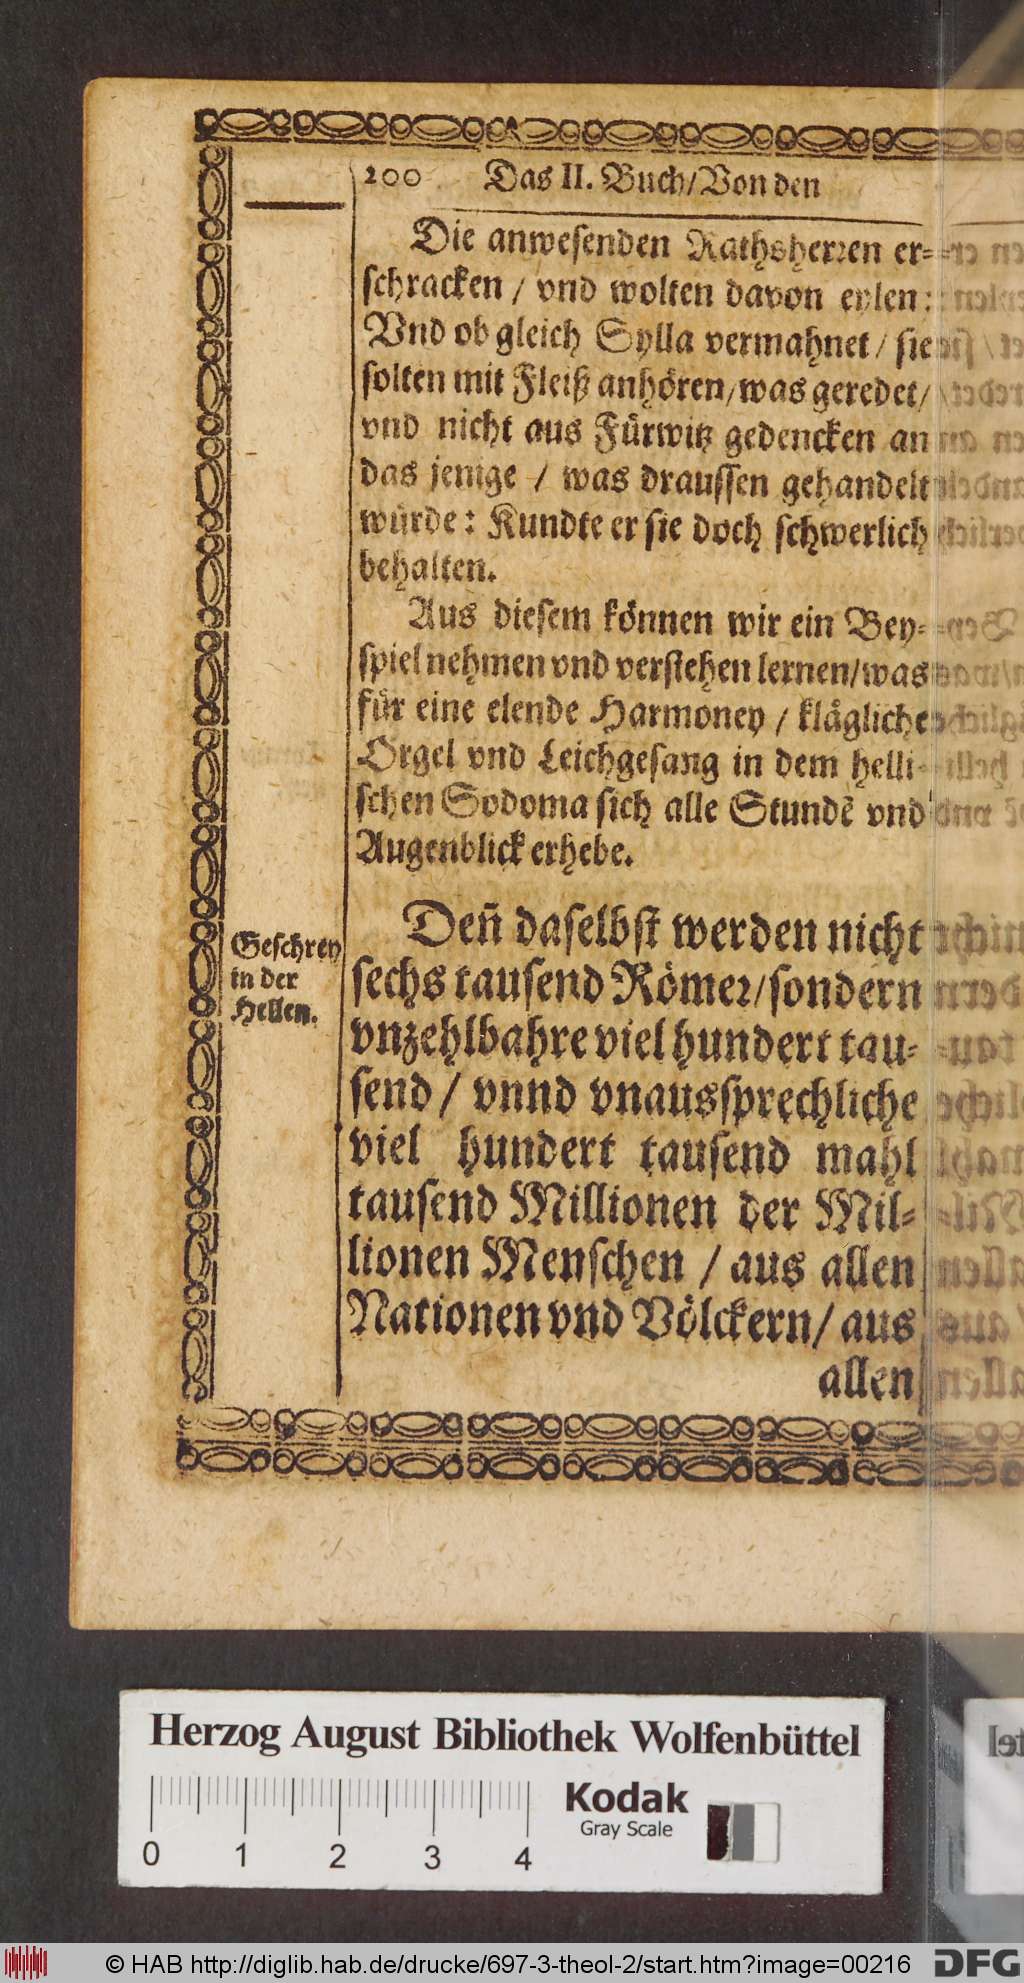 200 Das II. Buch/Von den
Die anwesenden Rathsherꝛen er-
schracken / vnd wolten davon eylen:
Vnd ob gleich Sylla vermahnet / sie
solten mit Fleiß anhören/was geredet/
vnd nicht aus Fürwitz gedencken an
das jenige / was draussen gehandelt
würde: Kundte er sie doch schwerlich
behalten.
Aus diesem können wir ein Bey-
spiel nehmen vnd verstehen lernen/was
für eine elende Harmoney / klägliche
Orgel vnd Leichgesang in dem helli-
schen Sodoma sich alle Stundē vnd
Augenblick erhebe.
Geschrey
in der
Hellen.
Deñ daselbst werden nicht
sechs tausend Römeꝛ/sondern
vnzehlbahre viel hundert tau-
send / vnnd vnaussprechliche
viel hundert tausend mahl
tausend Millionen der Mil-
lionen Menschen / aus allen
Nationen vnd Völckern/ aus
allen
Herzog August Bibliothek Wolfenbüttel
0 1 2 3 4
Kodak
Gray Scale
© HAB http://diglib.hab.de/drucke/697-3-theol-2/start.htm?image=00216
DFG